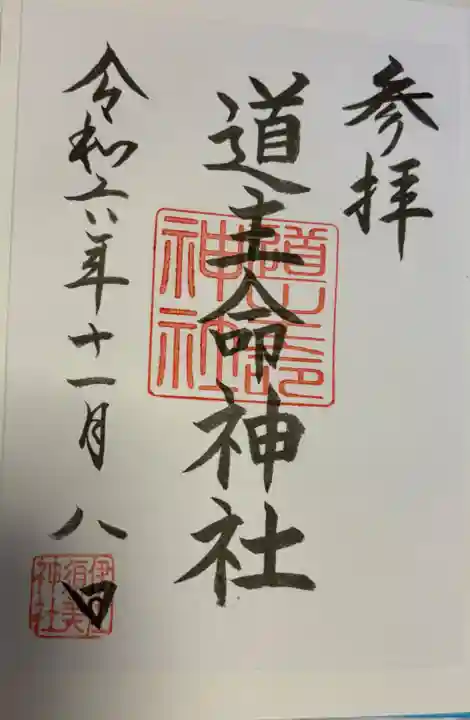 参拝
道主命神社
令和六年十一月八日
道主命神社
伊須美神社